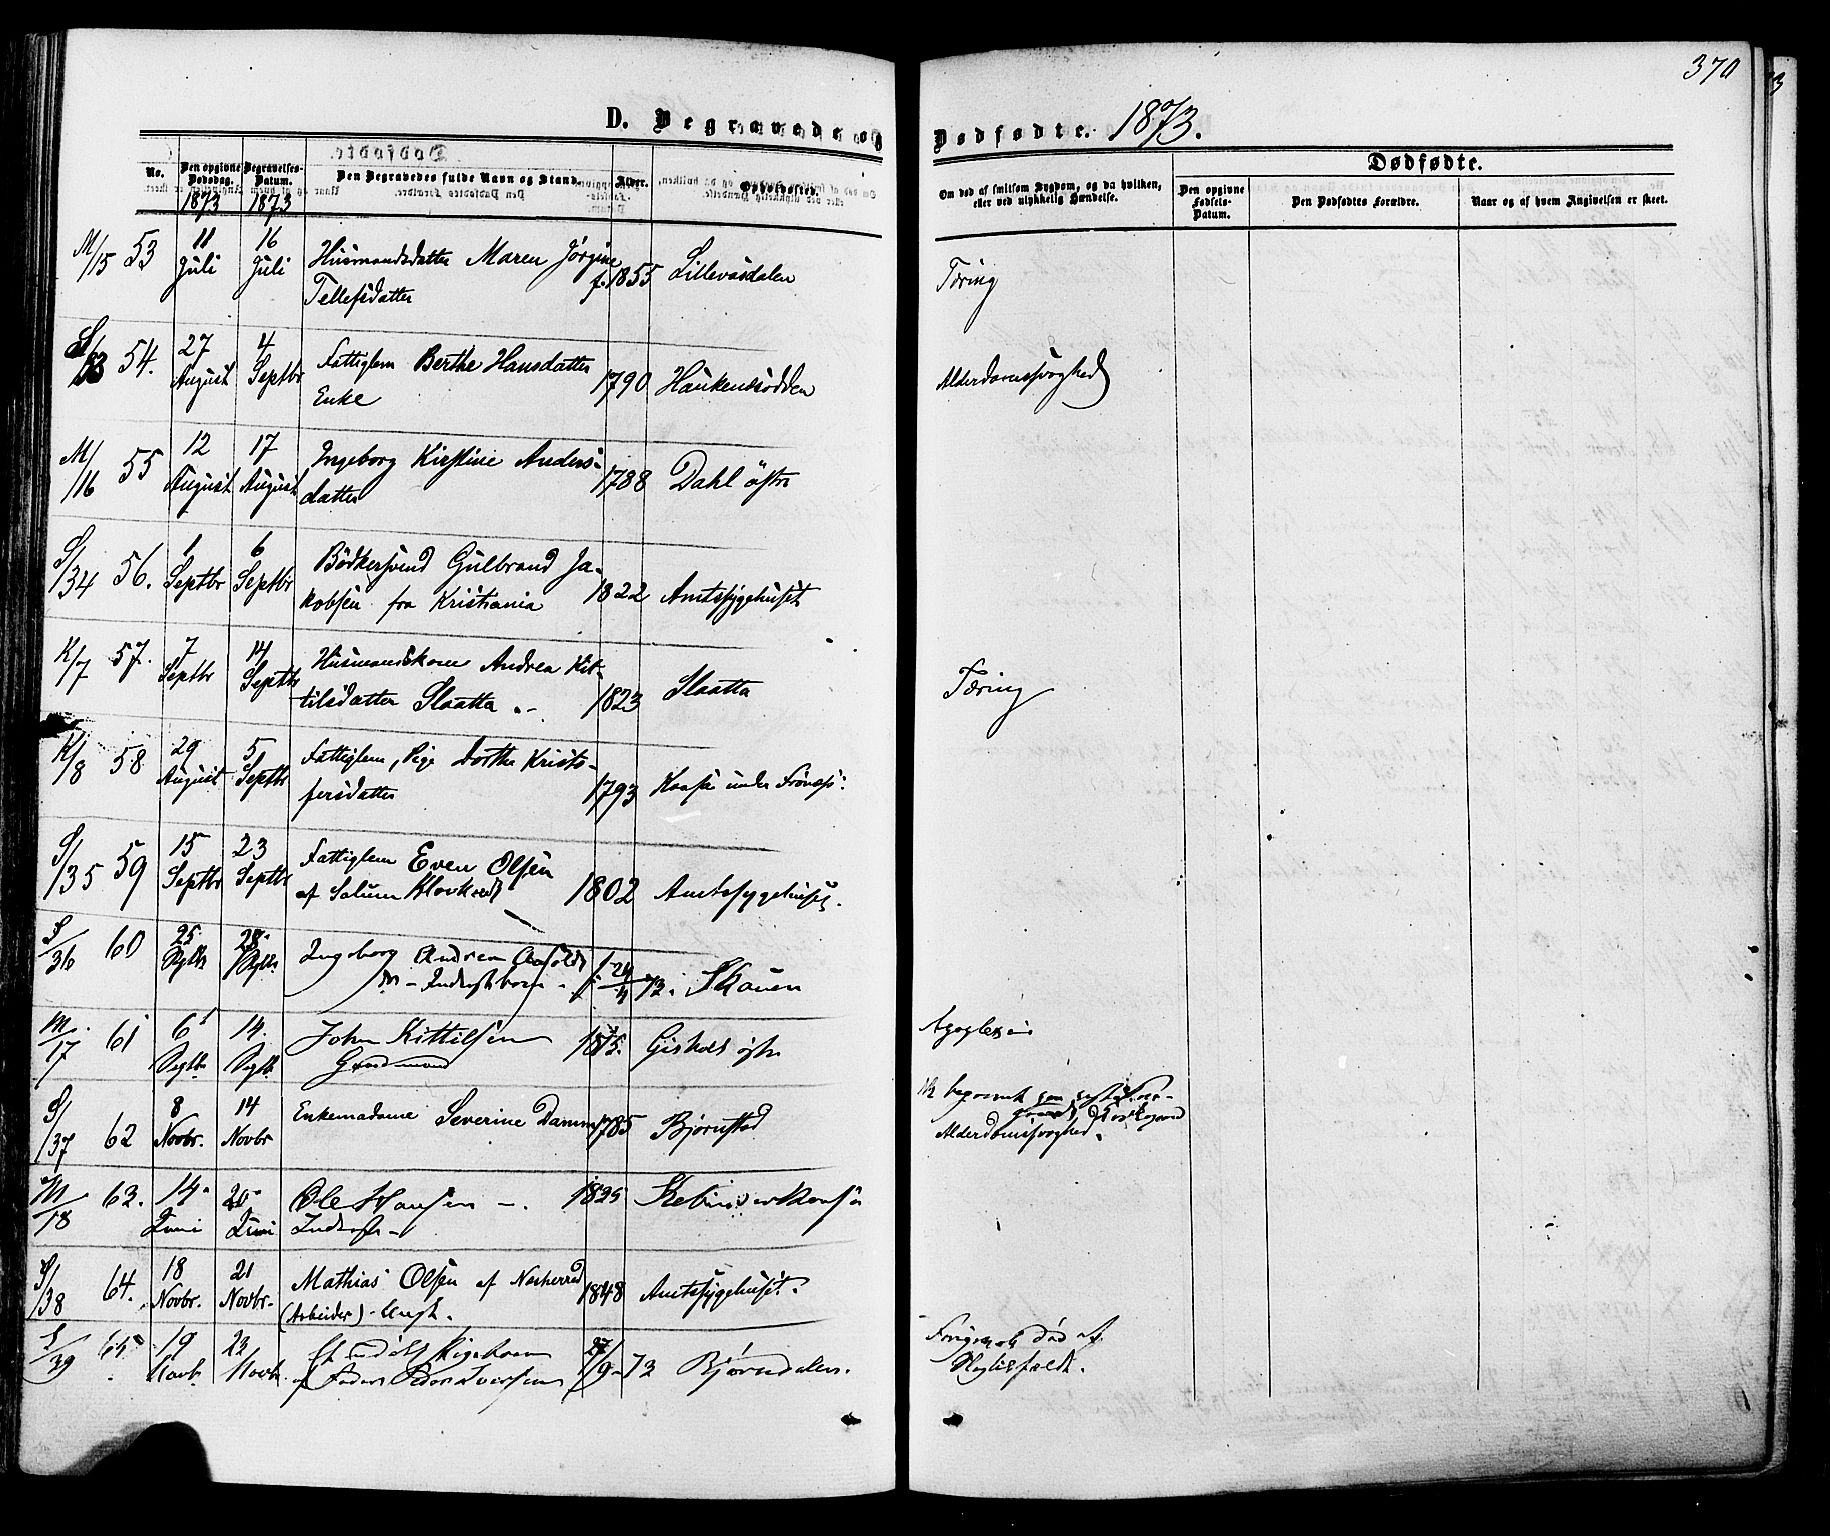 370
D. Begravede og Dødfødte. 1873.
Dødfødte.
No. Den opgivne Dødsdag. Begravelses-Datum. Den Begravedes fulde Navn og Stand. Alder. Dødssted. Om død af smitsom Sygdom, og da hvilken, eller ved ulykkelig Hændelse. Den opgivne Fødsels-Datum. Den Dødfødtes Forældre. Naar og af hvem Angivelsen er skeet.
1873 1873
M/15 53 11 Juli 16 Juli Husmandsdatter Maren Jørgine f. 1855 Lillevasdalen Tæring
Tellefsdatter
S/33 54. 27 August 4 Septbr Fattiglem Berthe Hansdatter 1790 Haukenesodden Alderdomssvaghed
Enke
M/16 55 12 August 17 August Ingeborg Kirstine Anders- 1788 Dahl östre
datter
S/34 56. 1 Septbr 6 Septbr Bödkersvend Gulbrand Ja- 1822 Amtssygehuset
kobsen fra Kristiania
K/7 57. 7 Septbr 14 Septbr Husmandskone Andrea Kit- 1823 Slaatta Tæring
tilsdatter Slaatta
K/8 58 29 August 5 Septbr Fattiglem, Pige Dorthe Kristo- 1793 Kaasa under Frönæs
fersdatter
S/35 59 15 Septbr 23 Septbr Fattiglem Even Olsen 1802 Amtssygehuset.
af Solum
S/36 60 25 Septb 28 Septb. Ingeborg Andrea 73. Skauen
M/17 61 6 Septb. 14. Septb. John Kittilsen Gisholt östre Apoplexie
Gaardmand
S/37 62 8 Novbr. 14 Novbr Enkemadame Severine Damm 1785 Bjørnstad begravet paa
Alderdomssvaghed.
M/18 63. 14 Juni 20 Juni Ole Hansen 1825
Inderst
S/38 64. 18 Novbr. 21 Novbr. Mathias Olsen af Nesherred 1848 Amtssygehuset.
(Arbeider) - Ungk.
S/39 65 19 Novb. 23 Novb. Et udöbt Pigebarn 9-73 Bjørndalen. død af
af Fader Peder Iversen